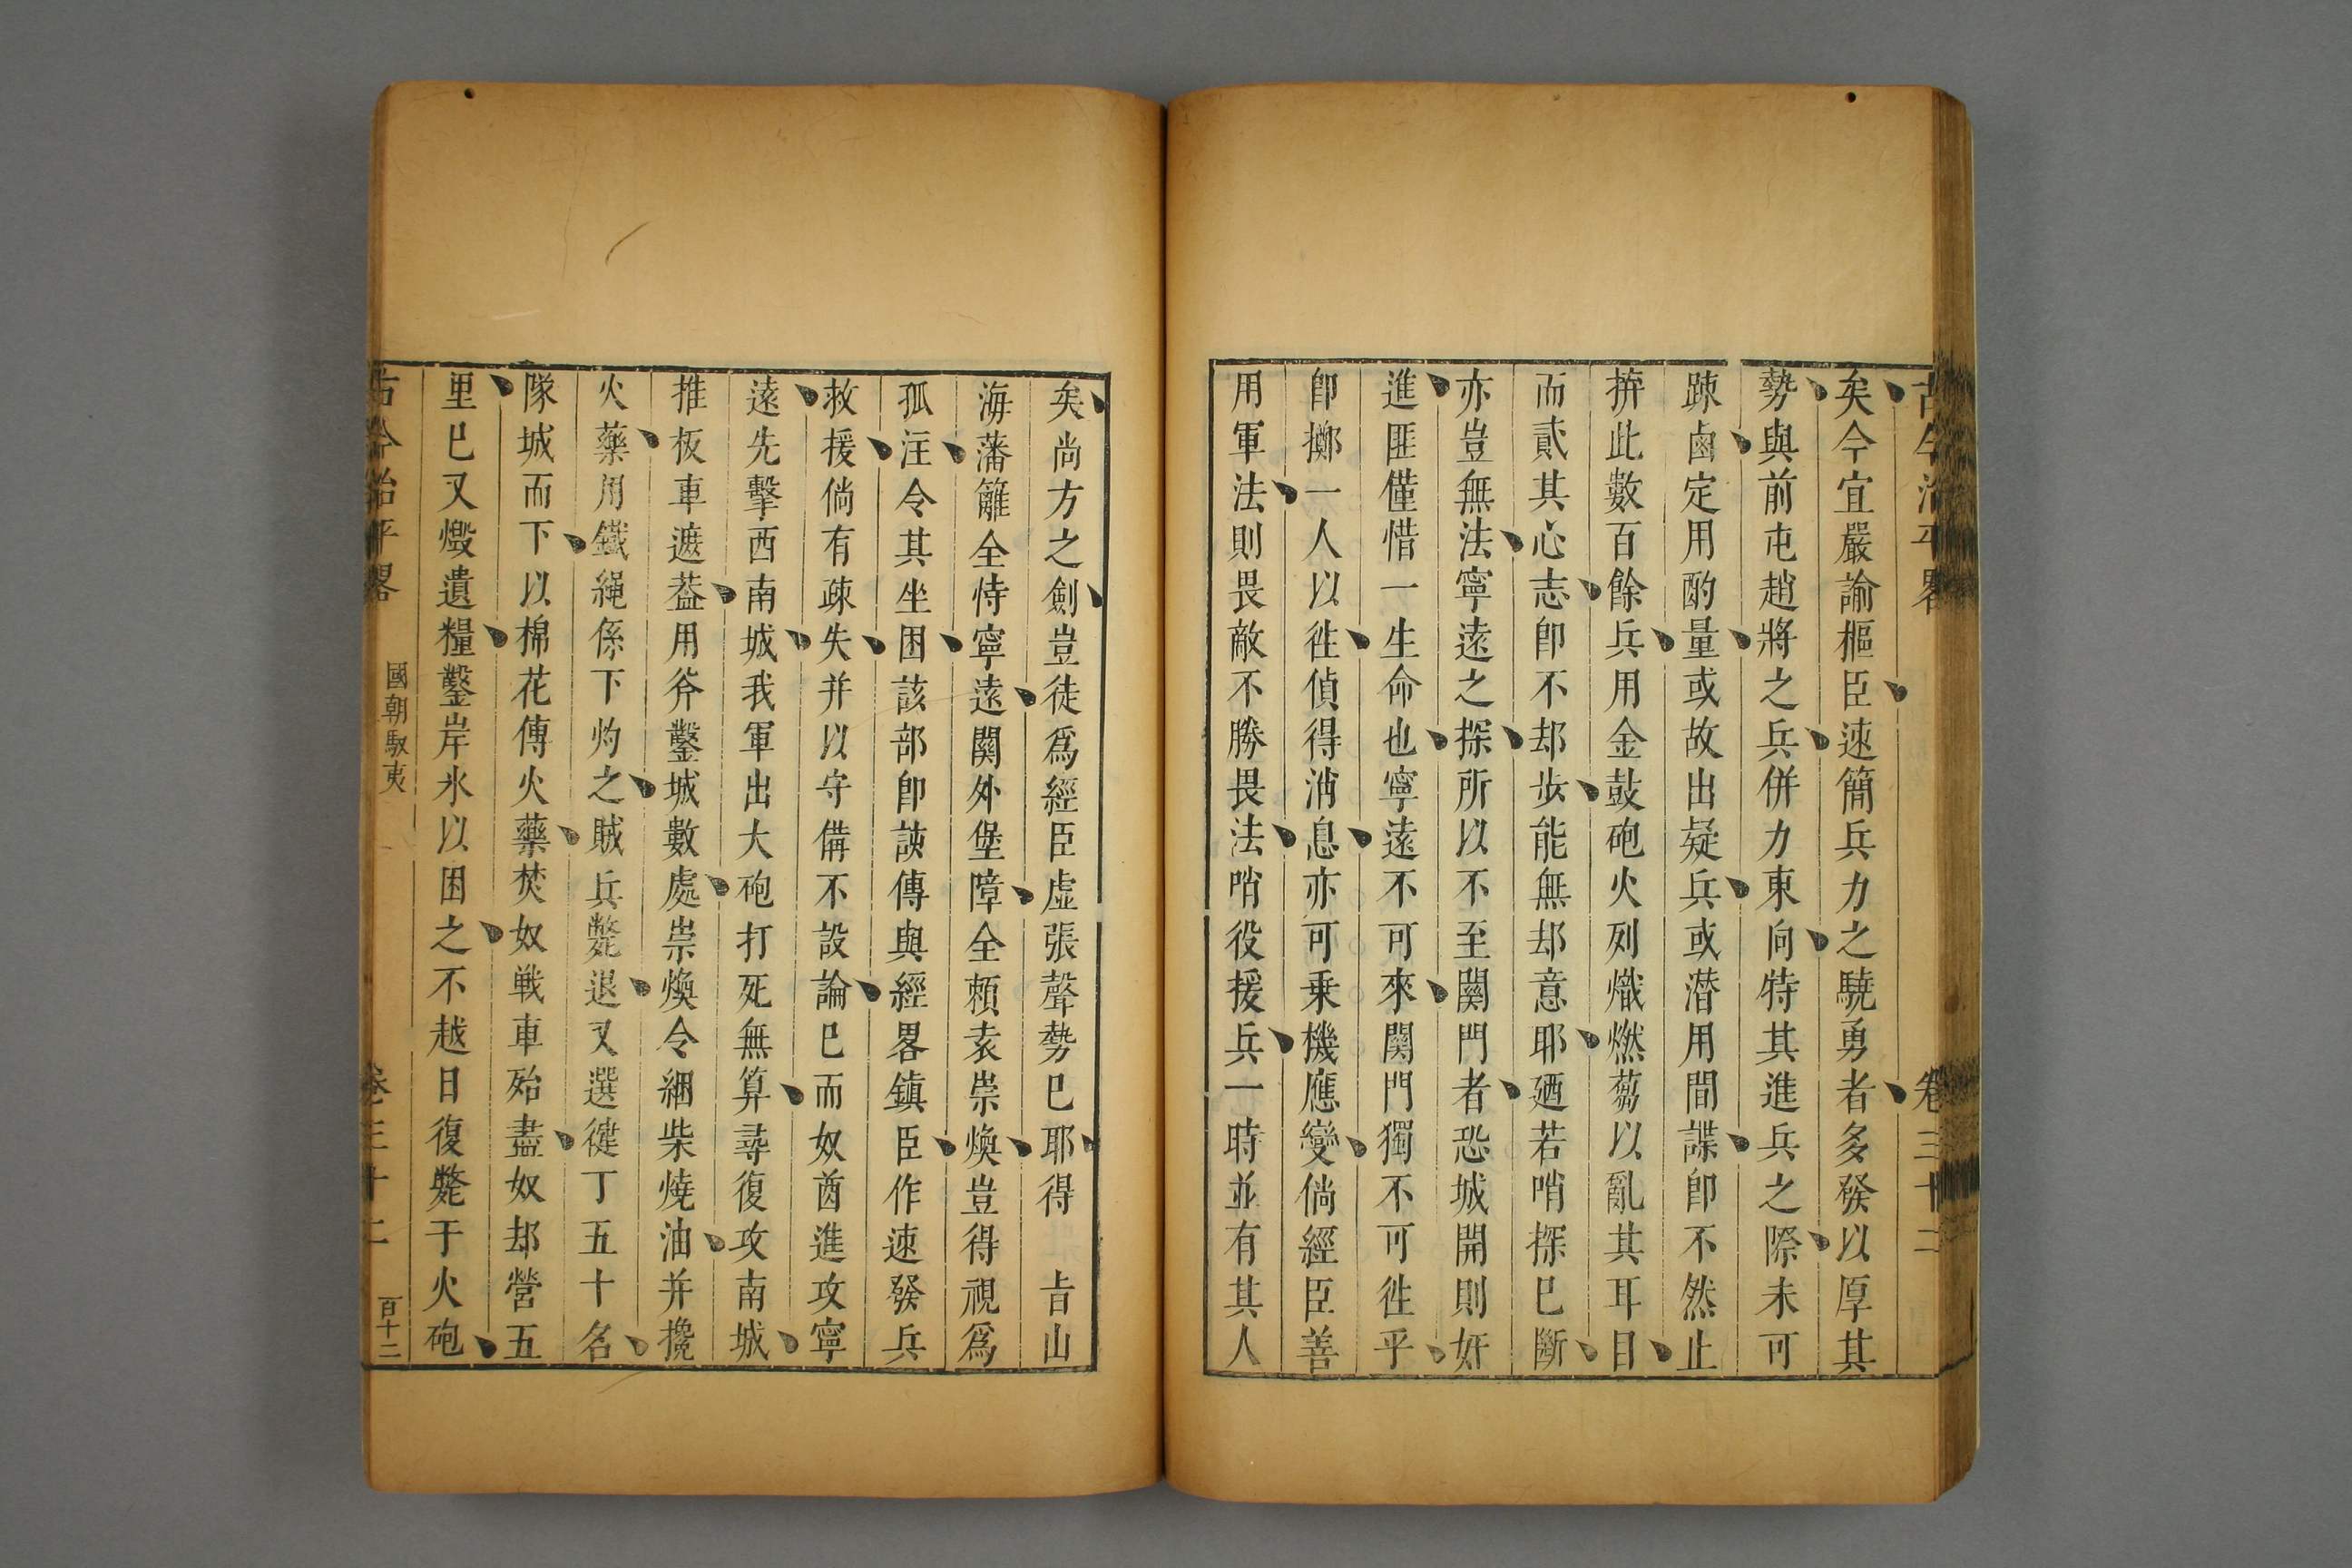 古今治平畧 卷三十二
矣今宜嚴諭樞臣速簡兵力之驍勇者多發以厚其
勢與前屯趙將之兵併力東向特其進兵之際未可
踈鹵定用酌量或故出疑兵或潛用間諜卽不然止
摒此數百餘兵用金鼓砲火列熾燃蒭以亂其耳目
而貳其心志卽不却步能無却意耶廼若哨探已斷
亦豈無法寧遠之探所以不至關門者恐城開則奸
進匪僅惜一生命也寧遠不可來關門獨不可徃乎
卽擲一人以徃偵得消息亦可乗機應變倘經臣善
用軍法則畏敵不勝畏法哨役援兵一時並有其人
矣尚方之劍豈徒爲經臣虛張聲勢已耶得 㫖山
海藩籬全恃寧遠關外堡障全頼袁崇煥豈得視爲
孤注令其坐困該部卽諛傳與經畧鎮臣作速發兵
救援倘有疎失并以守備不設論已而奴酋進攻寧
遠先擊西南城我軍出大砲打死無算尋復攻南城
推板車遮葢用斧鑿城數處崇煥令綑柴燒油并攙
火藥用鐵繩係下灼之賊兵斃退又選徤丁五十名
隊城而下以棉花傳火藥焚奴戰車殆盡奴却營五
里已又燬遺糧鑿岸氷以困之不越日復斃于火砲
古今治平畧 國朝馭夷 卷三十二 百十二